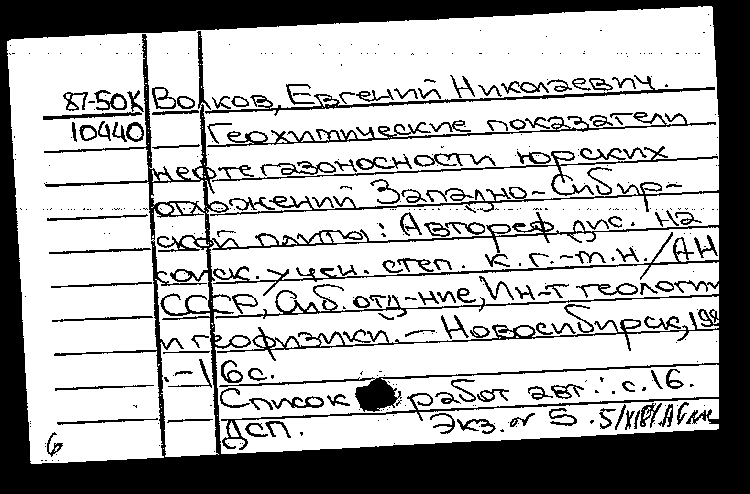 87-50К Волков, Евгений Николаевич.
10440 Геохимические показатели
нефтегазоносности юрских
отложений Западно-Сибир-
ской плиты: Автореф. дис. на
соиск. учен. степ. к. г.-м.н. / АН
СССР, Сиб. отд-ние, Ин-т геологии
и геофизики. — Новосибирск, 198
.-16с.
Список работ авт.: с. 16.
ДСП. Экз. № 5.
6